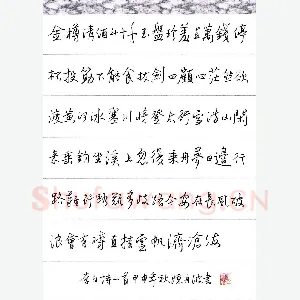 金樽清酒斗十千玉盘珍羞直万钱停
杯投箸不能食拔剑四顾心茫然欲
渡黄河冰塞川将登太行雪满山闲
来垂钓坐溪上忽复乘舟梦日边行
路难行路难多歧路今安在长风破
浪会有时直挂云帆济沧海